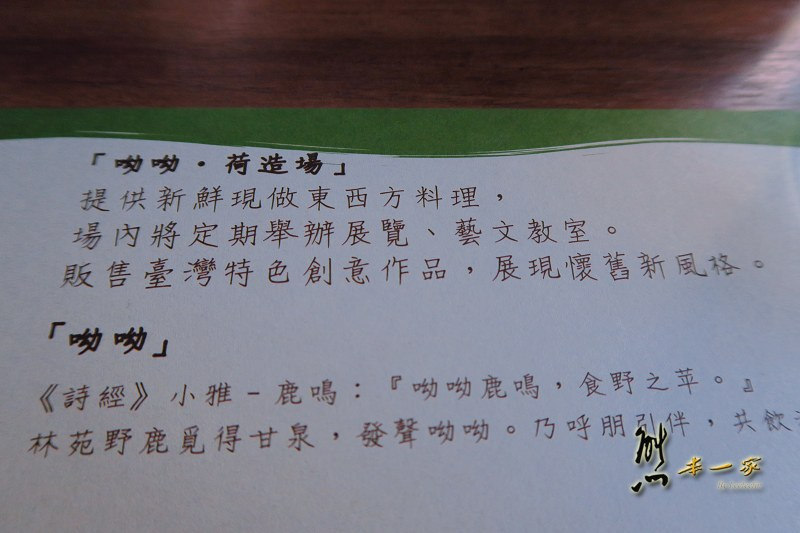 「呦呦·荷造場」
提供新鮮現做東西方料理，
場內將定期舉辦展覽、藝文教室。
販售臺灣特色創意作品，展現懷舊新風格。
「呦呦」
《詩經》小雅－鹿鳴：『呦呦鹿鳴，食野之苹。』
林苑野鹿覓得甘泉，發聲呦呦。乃呼朋引伴，共飲
熊本一家